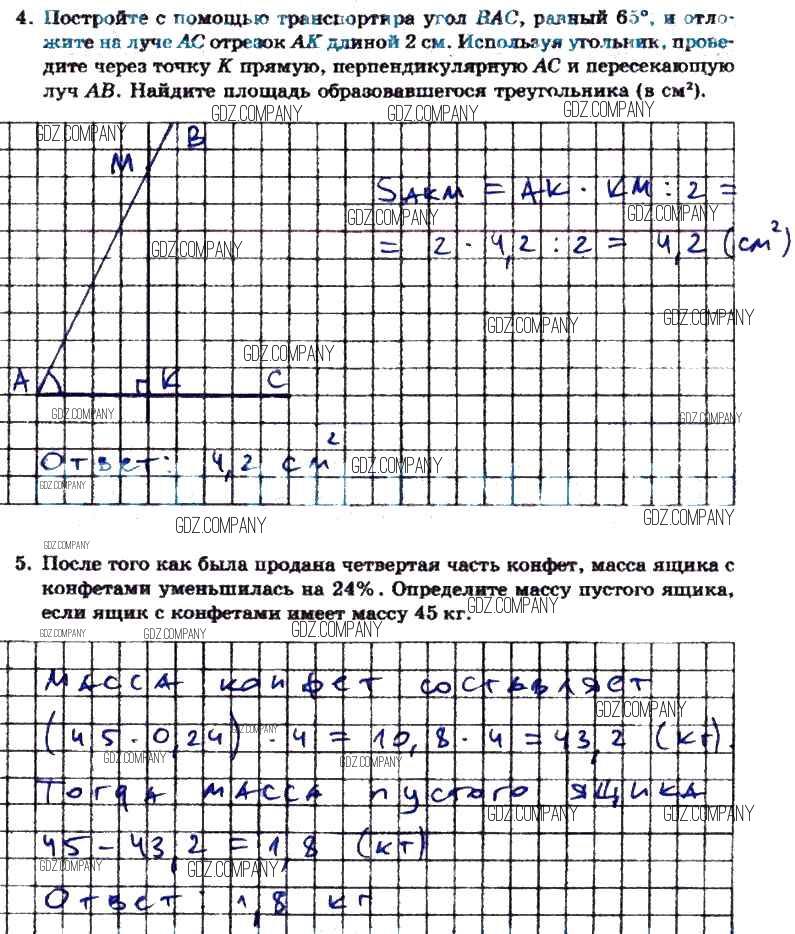 4. Постройте с помощью транспортира угол BAC, равный 65°, и отло-
жите на луче AC отрезок AK длиной 2 см. Используя угольник, прове-
дите через точку K прямую, перпендикулярную AC и пересекающую
луч AB. Найдите площадь образовавшегося треугольника (в см²).
GDZ.COMPANY GDZ.COMPANY GDZ.COMPANY
GDZ.COMPANY B
M
SAKM = AK · KM : 2 =
GDZ.COMPANY GDZ.COMPANY
GDZ.COMPANY = 2 · 4,2 : 2 = 4,2 (см²)
GDZ.COMPANY GDZ.COMPANY
GDZ.COMPANY
A K C
GDZ.COMPANY GDZ.COMPANY
Ответ: 4,2 см² GDZ.COMPANY
GDZ.COMPANY
GDZ.COMPANY GDZ.COMPANY
GDZ.COMPANY
5. После того как была продана четвертая часть конфет, масса ящика с
конфетами уменьшилась на 24%. Определите массу пустого ящика,
если ящик с конфетами имеет массу 45 кг. GDZ.COMPANY
GDZ.COMPANY GDZ.COMPANY GDZ.COMPANY
Масса конфет составляет
GDZ.COMPANY
(45 · 0,24) · 4 = 10,8 · 4 = 43,2 (кг).
GDZ.COMPANY
GDZ.COMPANY GDZ.COMPANY
Тогда масса пустого ящика
GDZ.COMPANY GDZ.COMPANY
45 - 43,2 = 1,8 (кг)
GDZ.COMPANY GDZ.COMPANY
Ответ: 1,8 кг